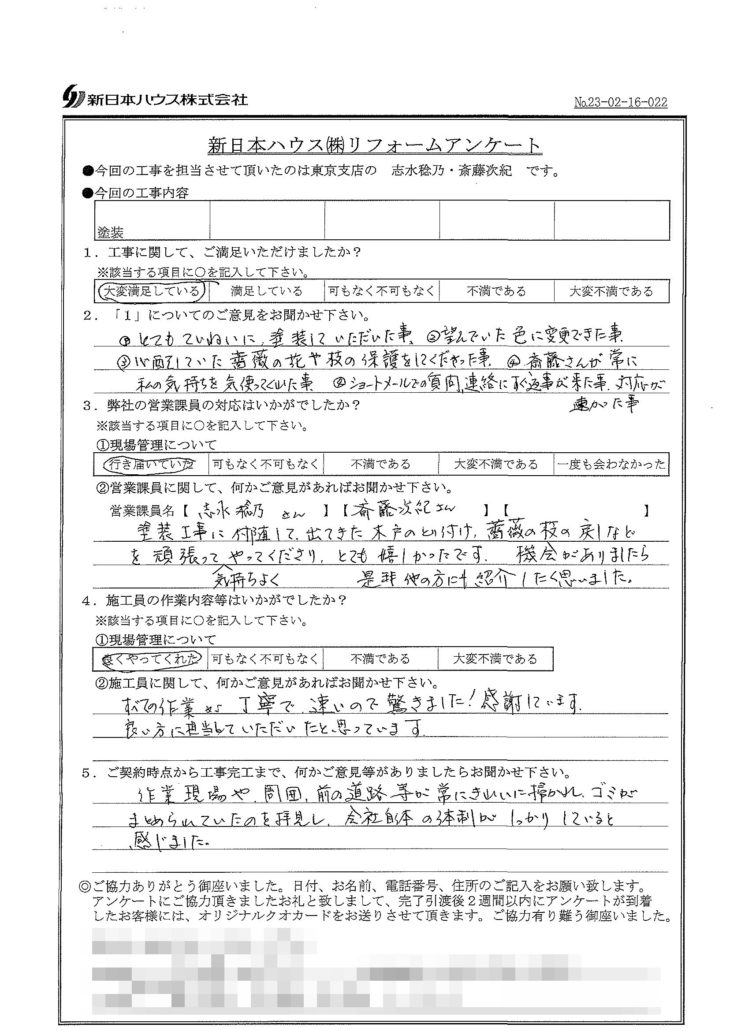 新日本ハウス株式会社
No.23-02-16-022
新日本ハウス㈱リフォームアンケート
●今回の工事を担当させて頂いたのは東京支店の 志水稔乃・斎藤次紀 です。
●今回の工事内容
塗装
1．工事に関して、ご満足いただけましたか？
※該当する項目に○を記入して下さい。
大変満足している 満足している 可もなく不可もなく 不満である 大変不満である
2．「1」についてのご意見をお聞かせ下さい。
① とてもていねいに、塗装していただいた事、②望んでいた色に変更できた事
③心配していた薔薇の花や枝の保護をしてくださった事、④斎藤さんが常に
私の気持ちを気使ってくれた事 ショートメールでの質問、連絡にすぐ返事が来た事、対応が
速かった事
3．弊社の営業課員の対応はいかがでしたか？
※該当する項目に○を記入して下さい。
①現場管理について
行き届いていた 可もなく不可もなく 不満である 大変不満である 一度も会わなかった
②営業課員に関して、何かご意見があればお聞かせ下さい。
営業課員名【 志水稔乃 さん 】【 斎藤次紀さん 】【 】
塗装工事に付随して、出てきた木戸のとり付け、薔薇の枝の戻しなど
を頑張ってやってくださり、とても嬉しかったです。 機会がありましたら
気持ちよく 是非他の方にも紹介したく思いました。
4．施工員の作業内容等はいかがでしたか？
※該当する項目に○を記入して下さい。
①現場管理について
良くやってくれた 可もなく不可もなく 不満である 大変不満である
②施工員に関して、何かご意見があればお聞かせ下さい。
すべての作業が丁寧で、速いので驚きました！感謝しています。
良い方に担当していただいたと思っています
5．ご契約時点から工事完工まで、何かご意見等がありましたらお聞かせ下さい。
作業現場や、周囲、前の道路等が常にきれいに掃かれ、ゴミが
まとめられていたのを拝見し、会社自体の体制がしっかりしていると
感じました。
◎ご協力ありがとう御座いました。日付、お名前、電話番号、住所のご記入をお願い致します。
アンケートにご協力頂きましたお礼と致しまして、完了引渡後2週間以内にアンケートが到着
したお客様には、オリジナルクオカードをお送りさせて頂きます。ご協力有り難う御座いました。